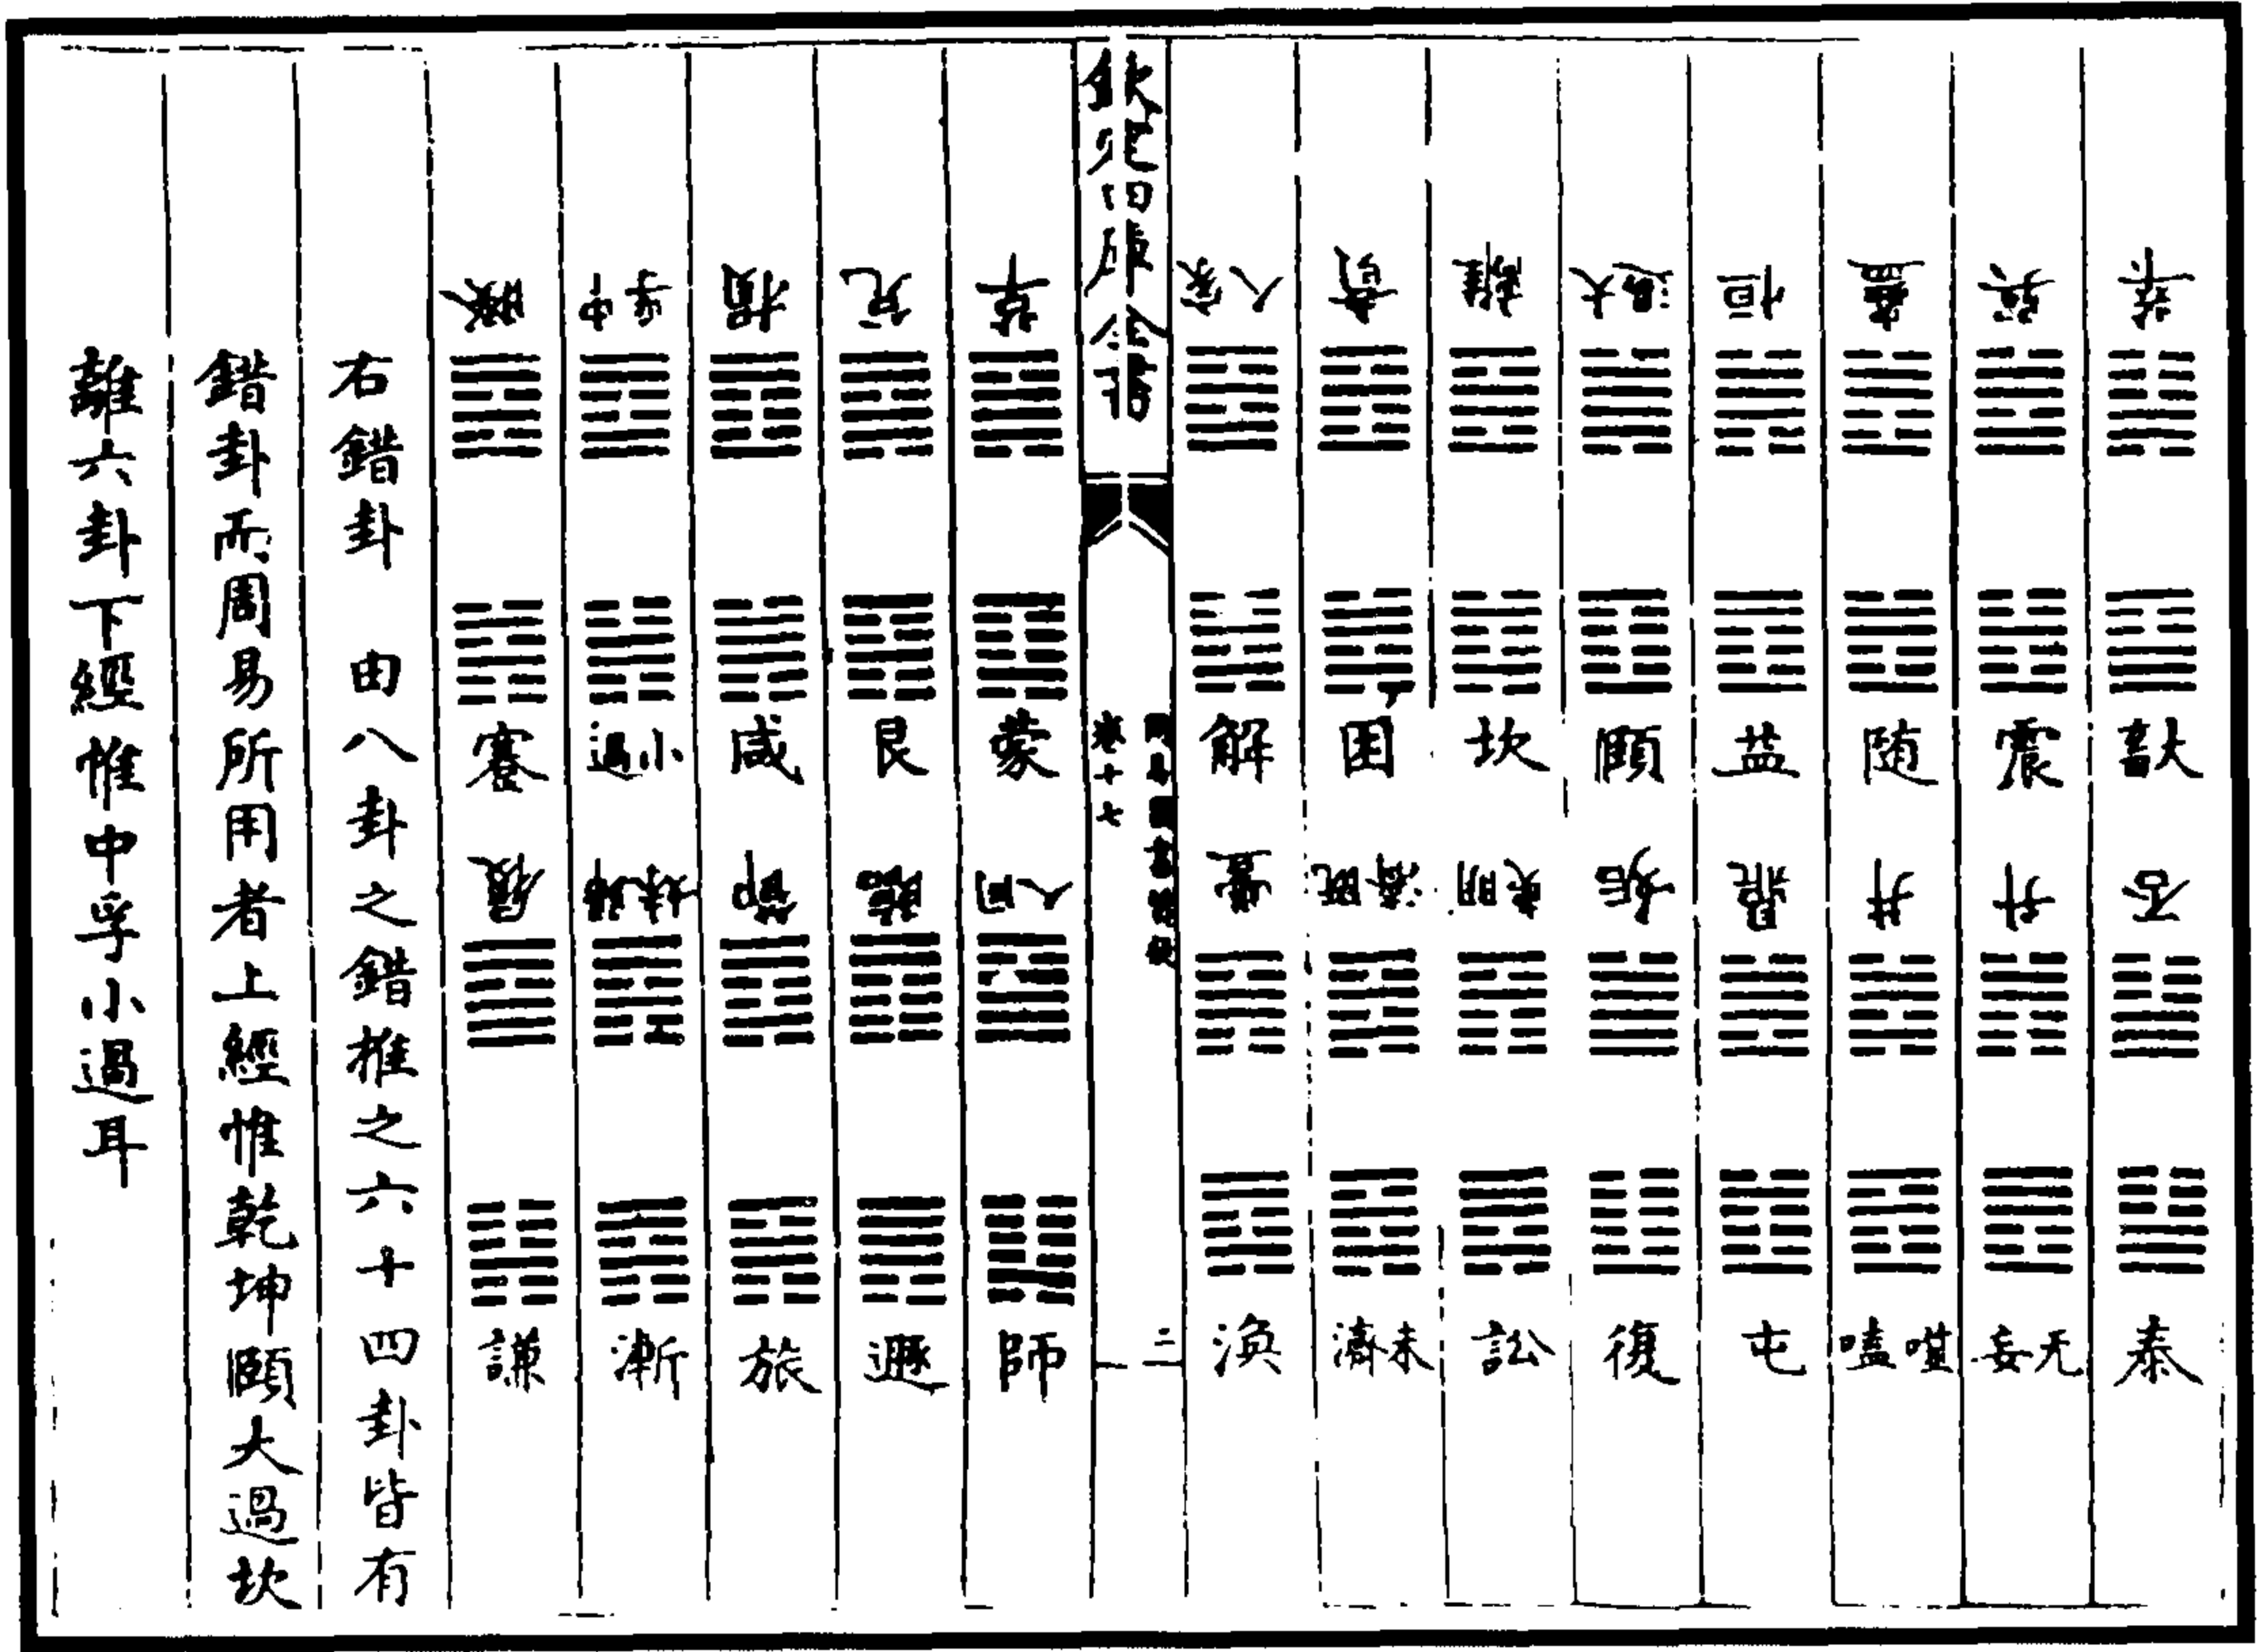 萃 大畜 否 泰
巽 震 升 无妄
蠱 随 井 噬嗑
恒 益 鼎 屯
大過 頤 姤 復
離 坎 明夷 訟
賁 困 既濟 未濟
家人 解 豐 渙
欽定四庫全書
卷十七
二
革 蒙 同人 師
兌 艮 臨 遯
損 咸 節 旅
中孚 小過 歸妹 漸
睽 蹇 履 謙
右錯卦 由八卦之錯推之六十四卦皆有
錯卦而周易所用者上經惟乾坤頤大過坎
離六卦下經惟中孚小過耳